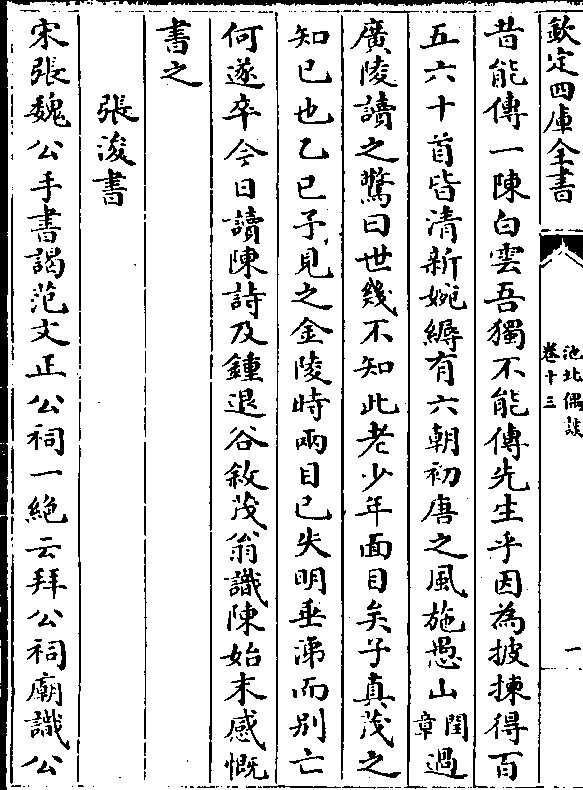 欽定四庫全書
池北偶談
卷十三
一
昔能傳一陳白雲吾獨不能傳先生乎因為披揀得百
五六十首皆清新婉縟有六朝初唐之風施愚山閏章過
廣陵讀之驚曰世幾不知此老少年面目矣子真茂之
知已也乙已予見之金陵時兩目已失明垂涕而别亡
何遂卒今日讀陳詩及鍾退谷敘茂翁識陳始末感慨
書之
張浚書
宋張魏公手書謁范文正公祠一絶云拜公祠廟識公